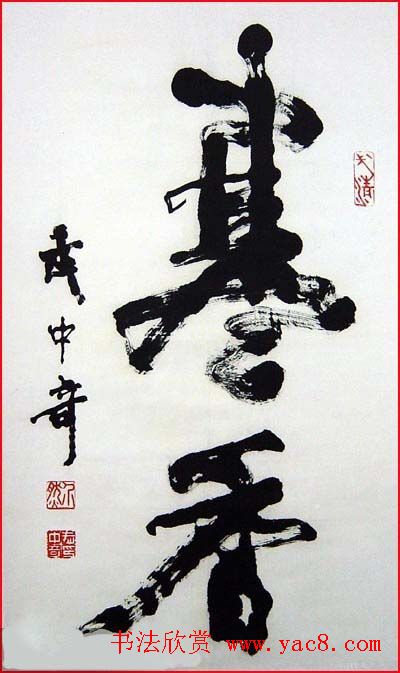 寒香
武中奇
书法欣赏 www.yac8.com